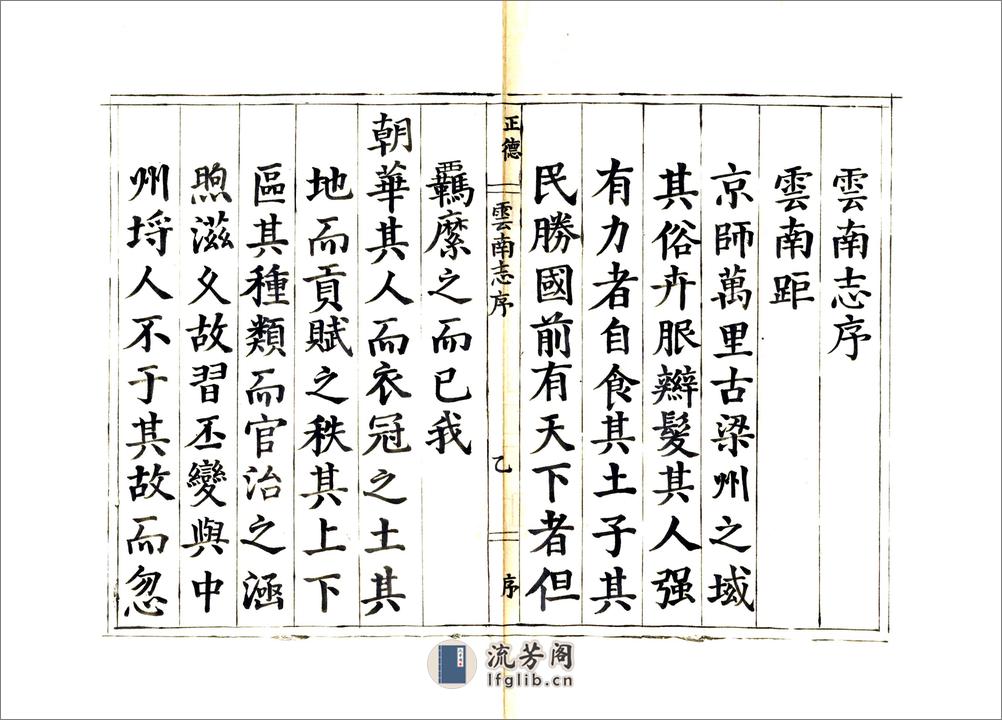 雲南志序
雲南距
京師萬里古梁州之域
其俗卉服辮髮其人强
有力者自食其土子其
民勝國前有天下者但
羈縻之而已我
正德
雲南志序
乙
序
朝華其人而衣冠之土其
地而貢賦之秩其上下
區其種類而官治之涵
煦滋久故習丕變與中
州埒人不于其故而忽
流芳阁
lfglib.cn